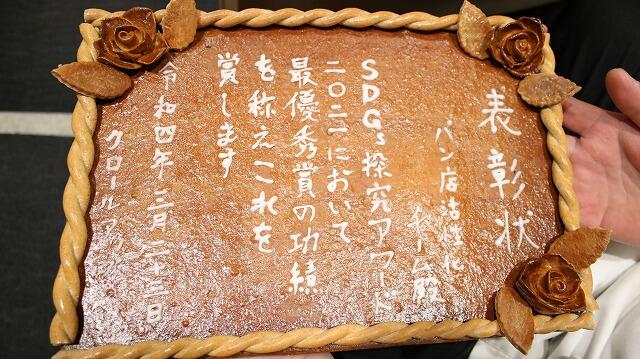 表彰状
パン店活性化
チーム殿
SDGs探究アワード
二〇二一において
最優秀賞の功績
を称えこれを
賞します
令和四年 三月二十三日
クロールアップ